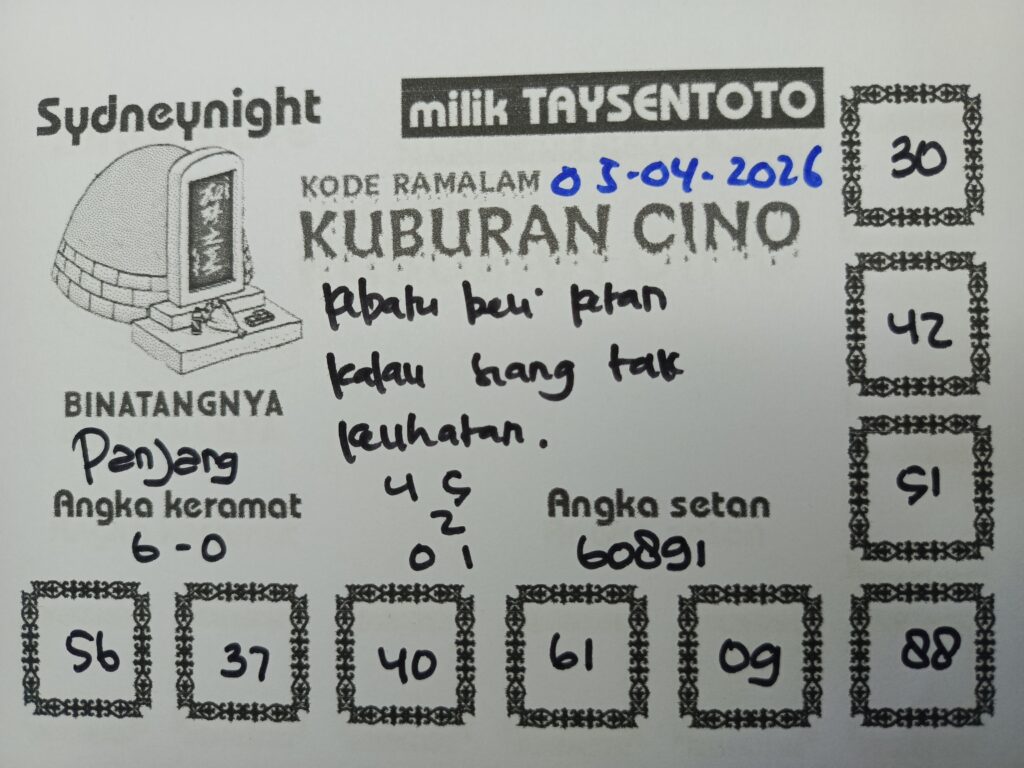 Sydneynight
milik TAYSENTOTO
KODE RAMALAM 05-04-2026
KUBURAN CINO
beli
kalau siang tak
BINATANGNYA
Panjang
4 5
2
0 1
Angka keramat
6-0
Angka setan
60891
30
42
51
56
37
40
61
09
88